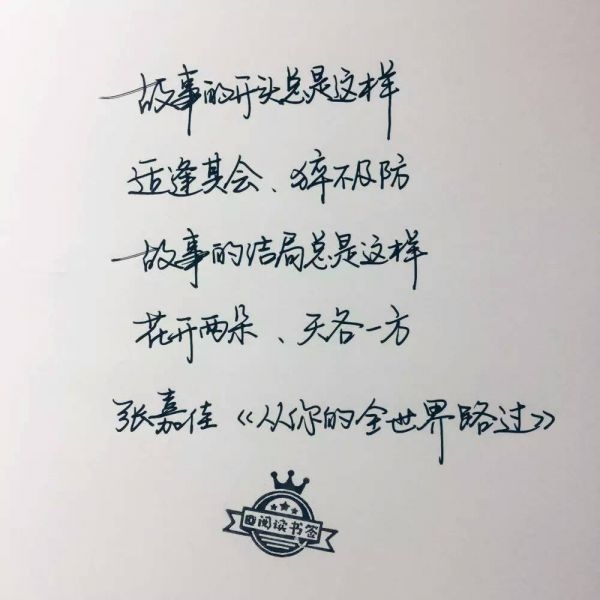 故事的开头总是这样
适逢其会、猝不及防
故事的结局总是这样
花开两朵、天各一方
张嘉佳《从你的全世界路过》
@阅读书签